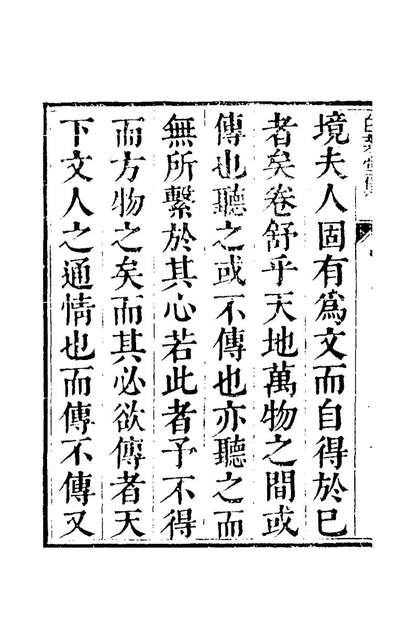 境夫人固有爲文而自得於已
者矣卷舒乎天地萬物之間或
傳也聽之或不傳也亦聽之而
無所繫於其心若此者予不得
而方物之矣而其必欲傳者天
下文人之通情也而傳不傳又